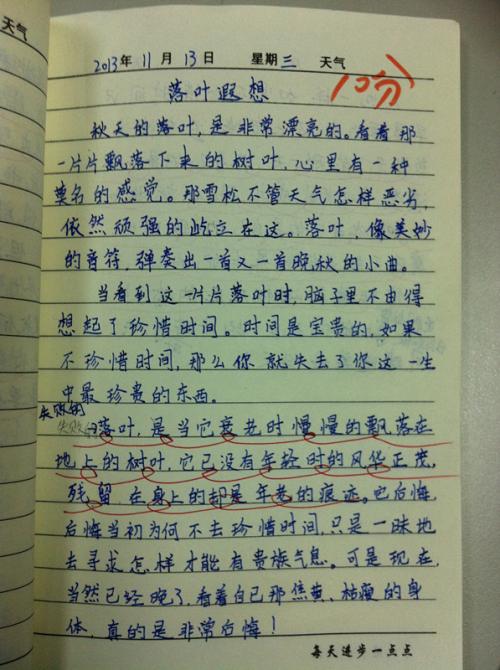 天气
2013年 11月 13日 星期三 天气
10分
落叶遐想
秋天的落叶,是非常漂亮的。看着那
一片片飘落下来的树叶,心里有一种
莫名的感觉。那雪松不管天气怎样恶劣,
依然顽强的屹立在这。落叶,像美妙
的音符,弹奏出一首又一首晚秋的小曲。
当看到这一片片落叶时,脑子里不由得
想起了珍惜时间。时间是宝贵的,如果
不珍惜时间,那么你就失去了你这一生
中最珍贵的东西。
失败的
失败的落叶,是当它衰老时慢慢的飘落在
地上的树叶,它已没有年轻时的风华正茂,
残留在身上的却是年老的痕迹。它后悔,
后悔当初为何不去珍惜时间,只是一味地
去寻求怎样才能有贵族气息。可是现在,
当然已经晚了,看着自己那焦黄、枯瘦的身
体,真的是非常后悔!
每天进步一点点